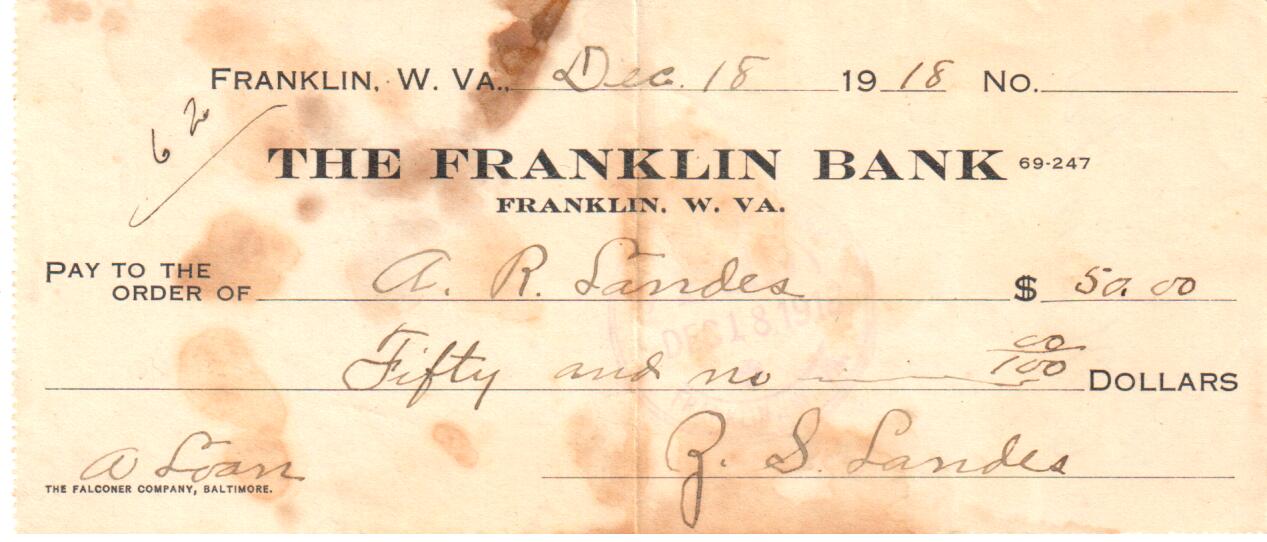 FRANKLIN, W. VA., Dec. 18 1918 No.
62
THE FRANKLIN BANK 69-247
FRANKLIN, W. VA.
PAY TO THE
ORDER OF A. R. Landes $ 50.00
DEC 18 1918
Fifty and no 00/100 DOLLARS
A Loan Z. S. Landes
THE FALCONER COMPANY, BALTIMORE.